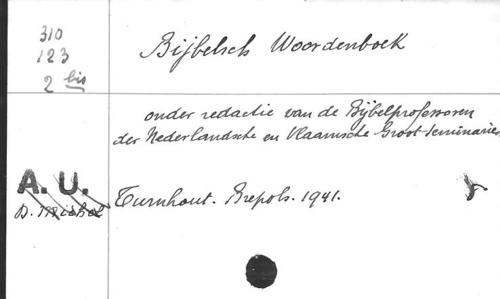 310
123
2 bis
Bijbelsch Woordenboek
onder redactie van de Bijbelprofessoren
der Nederlandsche en Vlaamsche Groot-Seminaries
A. U.
Turnhout. Brepols. 1941.